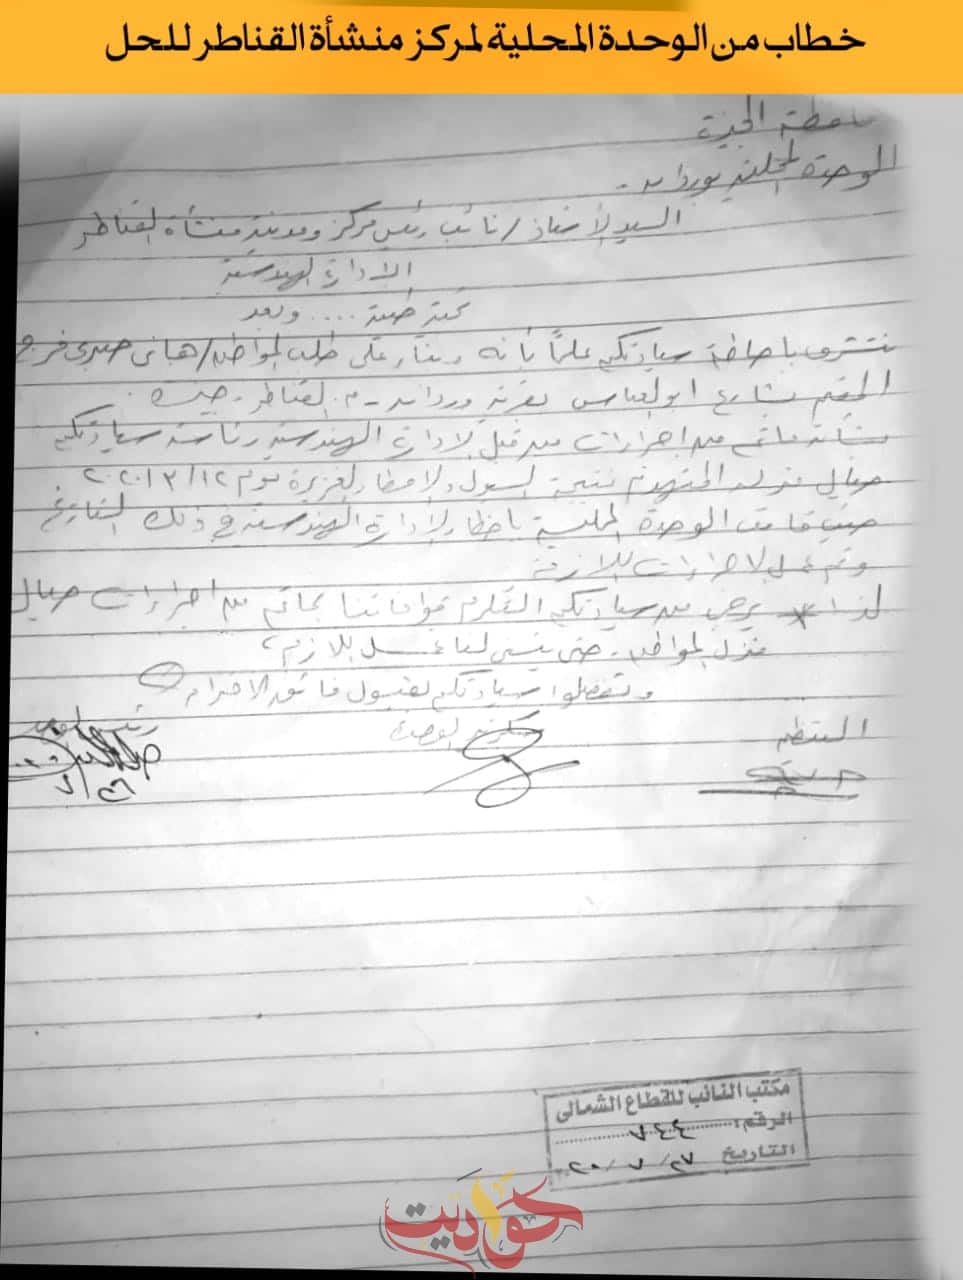 خطاب من الوحدة المحلية لمركز منشأة القناطر للحل
محافظة الجيزة
الوحدة المحلية بوردان
السيد الأستاذ / نائب رئيس مركز ومدينة منشأة القناطر
الادارة الهندسية
تحية طيبة .... وبعد
نتشرف باحاطة سيادتكم علماً بأنه وبناء على طلب المواطن / هانى صبرى فرج
المقيم بشارع ابو العباس بقرية وردان - م. القناطر - جيزة .
بشأن ما تم من اجراءات من قبل الادارة الهندسية رئاسة سيادتكم
حيال منزله المتهدم نتيجة السيول والامطار الغزيرة يوم ١٢ / ٣ / ٢٠٢٠
حيث قامت الوحدة المحلية باخطار الادارة الهندسية فى ذلك التاريخ
وتم عمل الاجراءات اللازمة
لذا يرجى من سيادتكم التكرم موافاتنا بما تم من اجراءات حيال
منزل المواطن . حتى يتسنى لنا عمل اللازم ،
وتفضلوا سيادتكم بقبول فائق الاحترام
المنظم
سكرتير الوحدة
رئيس
٧/٢٦
مكتب النائب للقطاع الشمالى
الرقم : ٧٤٤
التاريخ ٢٧ / ٧ / ٢٠٢٠
حواديت